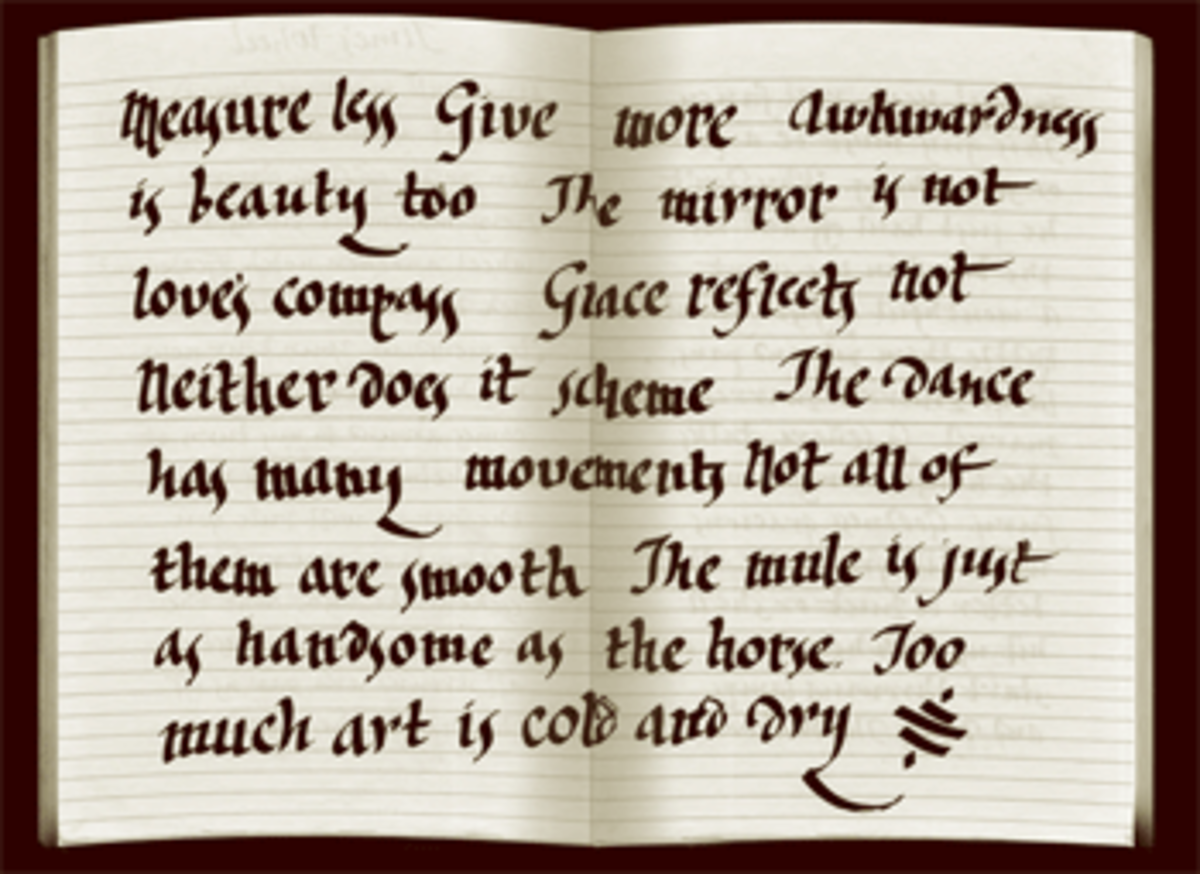 Measure less Give more Awkwardness
is beauty too The mirror is not
love's compass Grace reflects not
Neither does it scheme The dance
has many movements Not all of
them are smooth The mule is just
as handsome as the horse. Too
much art is cold and dry